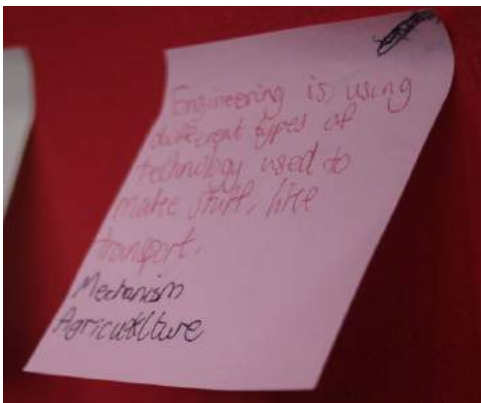 Engineering is using
different types of
technology used to
make stuff, like
transport.
Mechanism
Agriculture